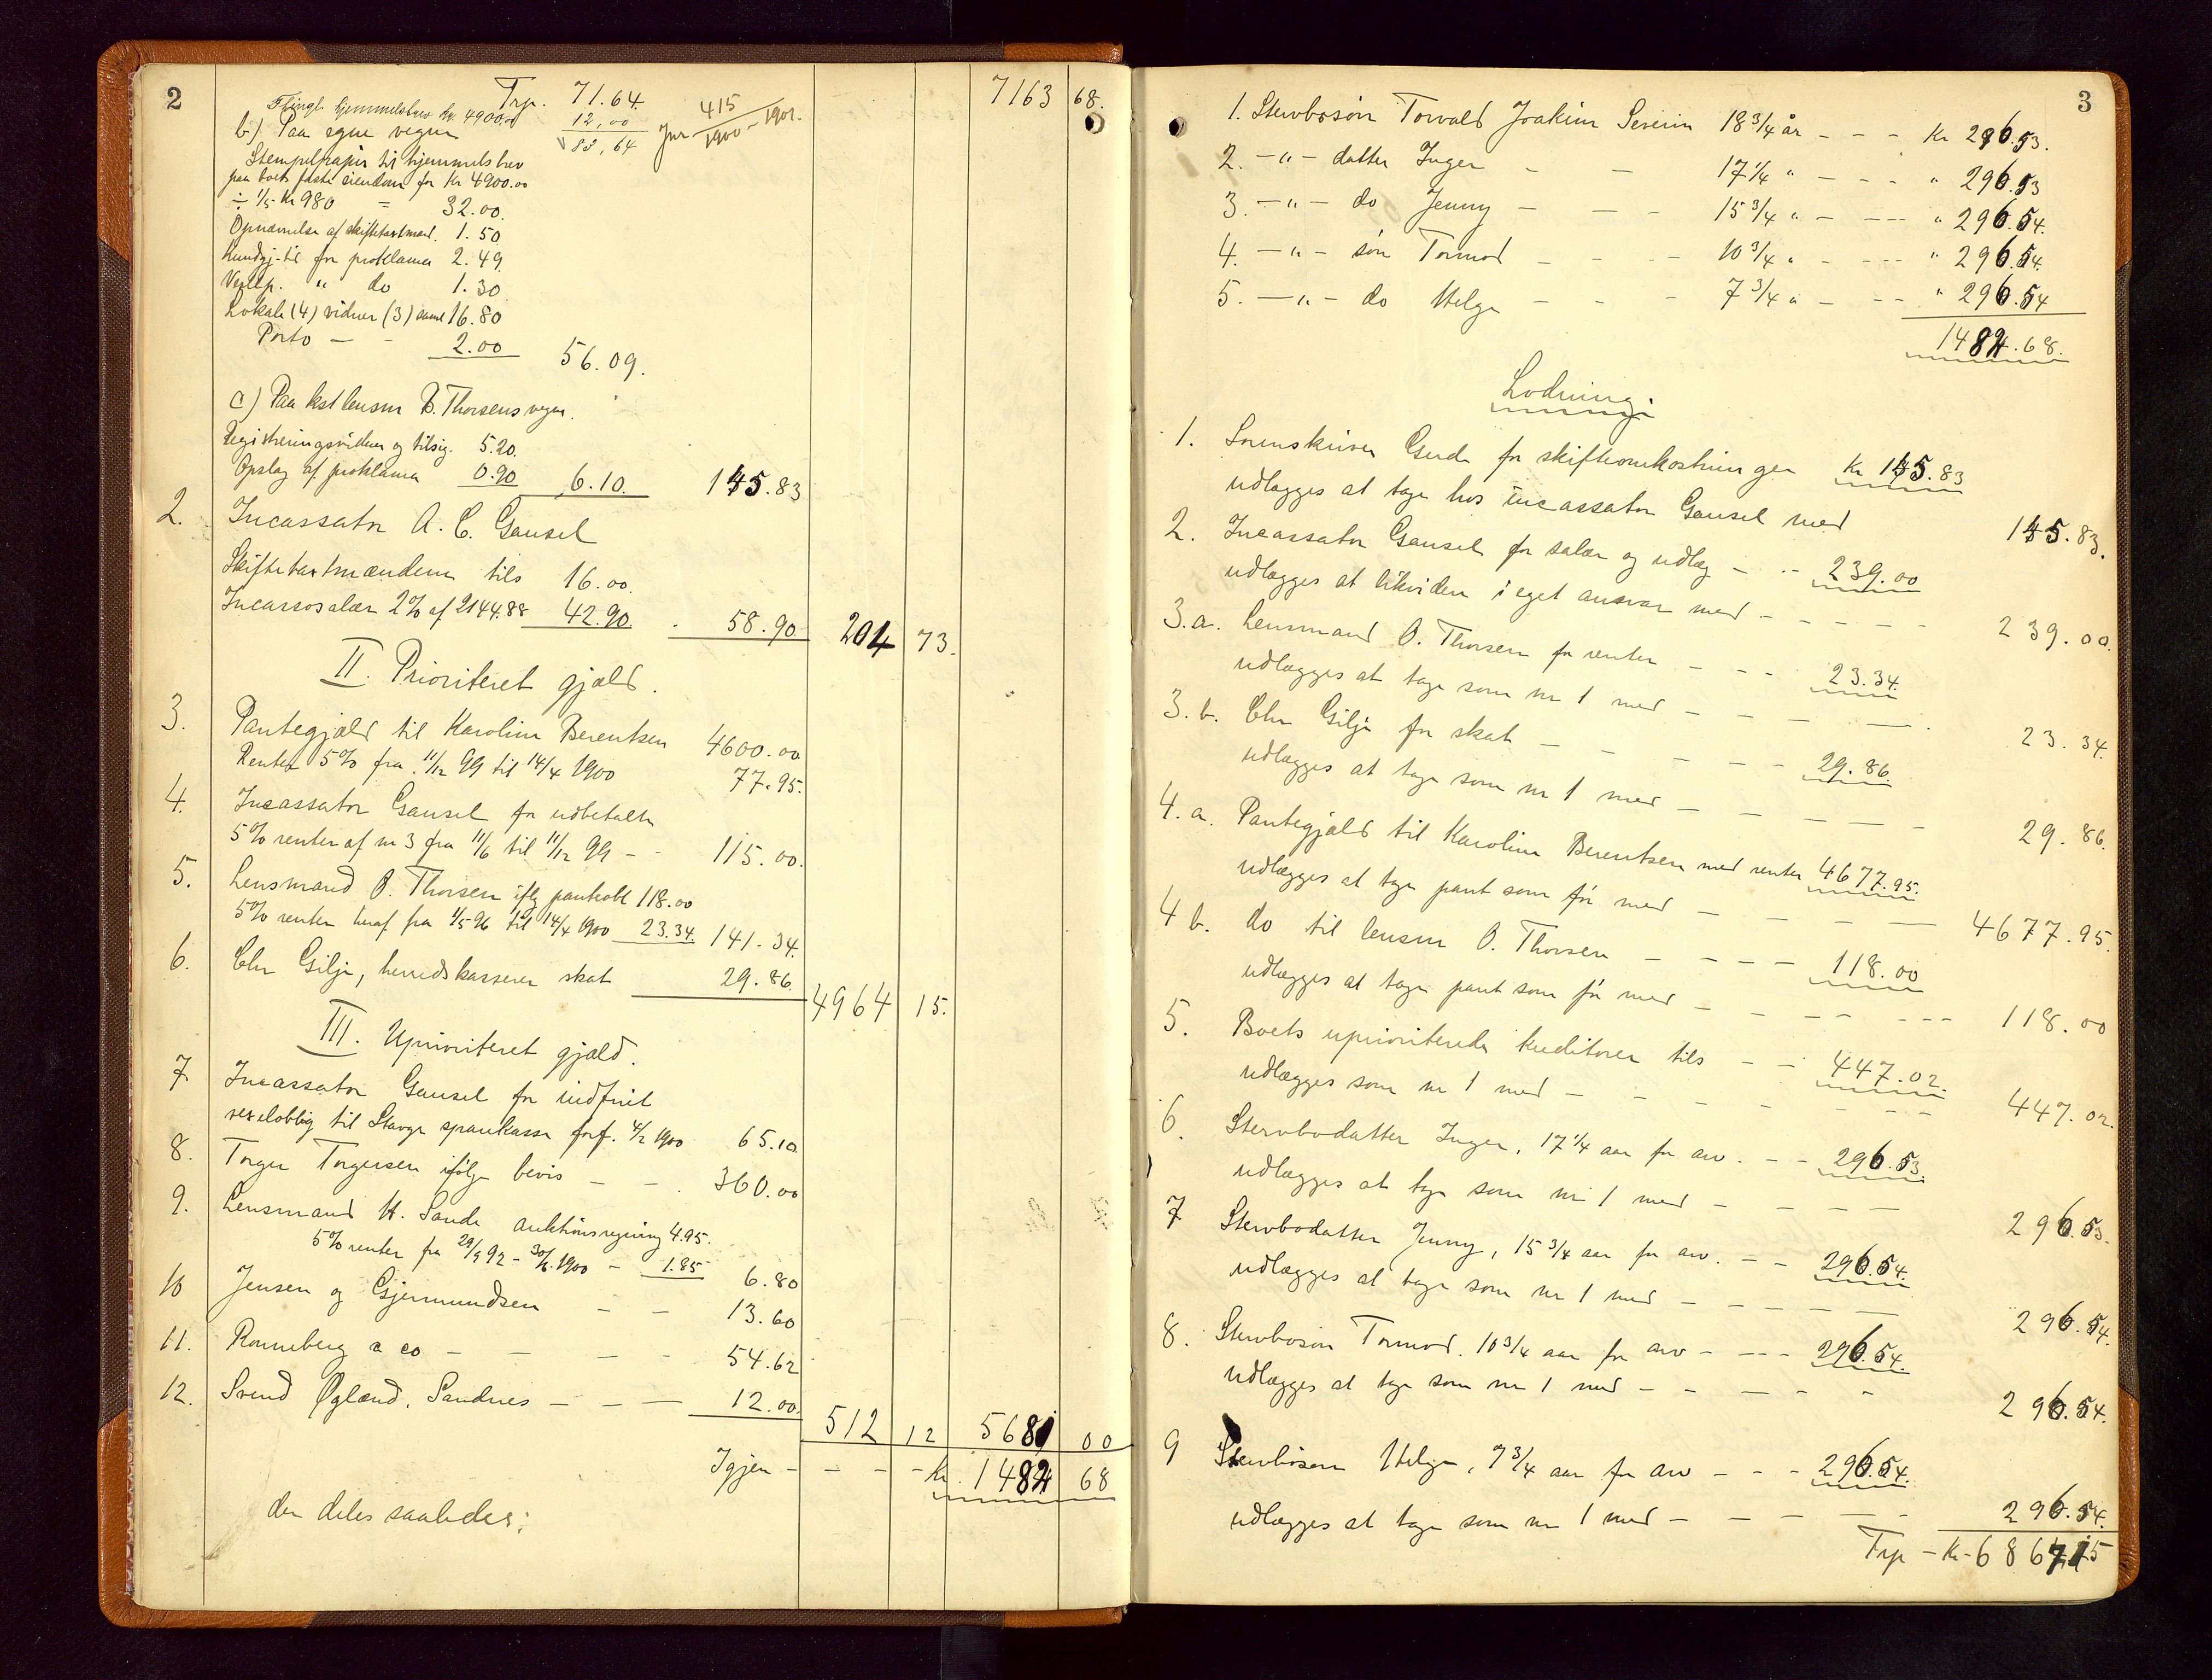 2
Trp. 71.64. 7163 68.
Tlingl. hjemmelsbrev kr. 4900.00 12,00
83,64 Jnr 415/1900 - 1901.
b.) Paa egne vegne
Stempelpapir til hjemmelsbrev
paa boets faste eiendom for Kr 4900.00
÷ 1/5 Kr 980 = 32.00.
Opnævnelse af skiftetaxtmænd. 1.50
Kundgj. for proklama 2.49
Vexelp. " do 1.30
Lokale (4) vidner (3) 16.80
Porto - - 2.00 56.09.
c) Paa kst lensm O. Thorsens vegne.
Registreringsvidner og tilsig. 5.20.
Opslag af proklama 0.90 6.10. 145.83
2. Incassator A. C. Gausel
Skiftetaxtmændene tils 16.00.
Incassosalær 2% af 2144.88 42.90. 58.90 204 73.
II. Prioriteret gjæld.
3. Pantegjæld til Karoline Berentsen 4600.00
Renter 5% fra 11/12 99 til 14/4 1900 77.95.
4. Incassator Gausel for udbetalte
5% renter af nr 3 fra 11/6 til 11/12 99 - - 115.00.
5. Lensmand O. Thorsen iflg panteobl 118.00
5% renter heraf fra 1/5 96 til 14/4 1900 23.34. 141.34.
6. Chr Gilje, herredskasserer skat 29.86 4964 15.
III. Uprioriteret gjæld.
7. Incassator Gausel for indfriet
vexelobllig til Stavgr sparekasse forf. 4/2 1900 65.10
8. Torger Torgersen ifølge bevis - - 360.00
9. Lensmand H. Sande auktionsregning 4.95.
5% renter fra 29/9 92 - 30/6 1900 - 1.85 6.80
10 Jensen og Gjermundsen - - 13.60
11. Ronneberg & co - - - - 54.62
12. Svend Øglænd, Sandnes - - - 12.00 512 12 5681 00
Igjen - - - - Kr. 1482 68
der deles saaledes:
3
1. Stervbosøn Torvald Joakim Severin 18 3/4 år - - - Kr 296.53.
2. -"- datter Inger - - 17 1/4 " - - - " 296.53
3. -"- do Jenny - - - 15 3/4 " - --- " 296.54.
4. -"- søn Tormod - - - - 10 3/4 " - --- " 296.54.
5. -"- do Helge - - - 7 3/4 " - -- " 296.54
1482.68.
Lodning:
1. Sorenskriver Gude for skifteomkostninger Kr 145.83
udlægges at tage hos incassator Gausel med 145.83.
2. Incassator Gausel for salær og udlæg - -- 239.00
udlægges at likvidere i eget ansvar med - - - - - 239.00.
3.a. Lensmand O. Thorsen for renter - - - 23.34.
udlægges at tage som nr 1 med - - - - - 23.34.
3.b. Chr Gilje for skat - - - - - 29.86.
udlægges at tage som nr 1 med - - - - - 29.86.
4.a. Pantegjæld til Karoline Berentsen med renter 4677.95.
udlægges at tage pant som før med - - - - - 4677.95.
4 b. do til lensm O. Thorsen - - - - 118.00
udlægges at tage pant som før med - - - - - --- 118.00
5. Boets uprioriterede kreditorer tils - - 447.02.
udlægges som nr 1 med - - - - - - - - 447.02.
6. Stervbodatter Inger, 17 1/4 aar for arv. - - 296.53
udlægges at tage som nr 1 med - - - - - 296.53.
7 Stervbodatter Jenny, 15 3/4 aar for arv. - - 296.54.
udlægges at tage som nr 1 med - - - - - 296.54.
8. Stervbosøn Tormod, 10 3/4 aar for arv - --- 296.54.
udlægges at tage som nr 1 med - - - - - 296.54.
9 Stervbosøn Helge, 7 3/4 aar for arv - - - 296.54.
udlægges at tage som nr 1 med - - - - - 296.54.
Trp - Kr- 6867.15